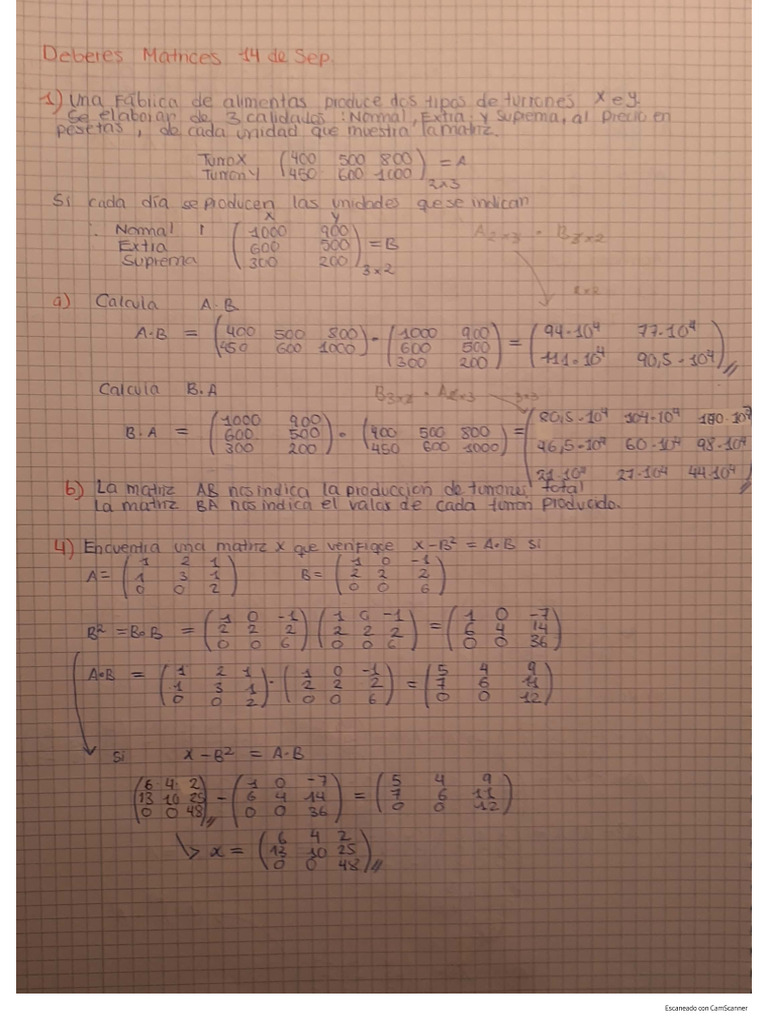 Deberes Matrices 14 de Sep.
1) Una Fábrica de alimentas produce dos tipos de turrones x e y.
Se elaborar de 3 calidades: Normal, Extra y Suprema, al precio en
pesetas, de cada unidad que muestra la matriz.
Turro X (400 500 800) = A
Turron Y (450 600 1000) 2x3
Si cada día se producen las unidades que se indican
x y
Normal (1000 900)
Extra (600 500) = B
Suprema (300 200) 3x2
A2x3 · B3x2
2x2
a) Calcula A·B
A·B = (400 500 800 / 450 600 1000) · (1000 900 / 600 500 / 300 200) = (94·10⁴ 77·10⁴ / 111·10⁴ 90,5·10⁴)
Calcula B.A
B3x2 · A2x3 3x3
B.A = (1000 900 / 600 500 / 300 200) · (400 500 800 / 450 600 1000) = (80,5·10⁴ 104·10⁴ / 46,5·10⁴ 60·10⁴ 98·10⁴ / 21·10⁴ 27·10⁴ 44·10⁴)
b) La matriz AB nos indica la produccion de turrones total
La matriz BA nos indica el valor de cada turron producido.
4) Encuentra una matriz x que verifique x-B² = A·B si
A = (1 2 1 / 1 3 1 / 0 0 2) B = (1 0 -1 / 2 2 2 / 0 0 6)
B² = B·B = (1 0 -1 / 2 2 2 / 0 0 6) (1 0 -1 / 2 2 2 / 0 0 6) = (1 0 -7 / 6 4 14 / 0 0 36)
A·B = (1 2 1 / 1 3 1 / 0 0 2) · (1 0 -1 / 2 2 2 / 0 0 6) = (5 4 9 / 7 6 11 / 0 0 12)
Si x-B² = A·B
(6 4 2 / 13 10 25 / 0 0 48) - (1 0 -7 / 6 4 14 / 0 0 36) = (5 4 9 / 7 6 11 / 0 0 12)
x = (6 4 2 / 13 10 25 / 0 0 48)
Escaneado con CamScanner